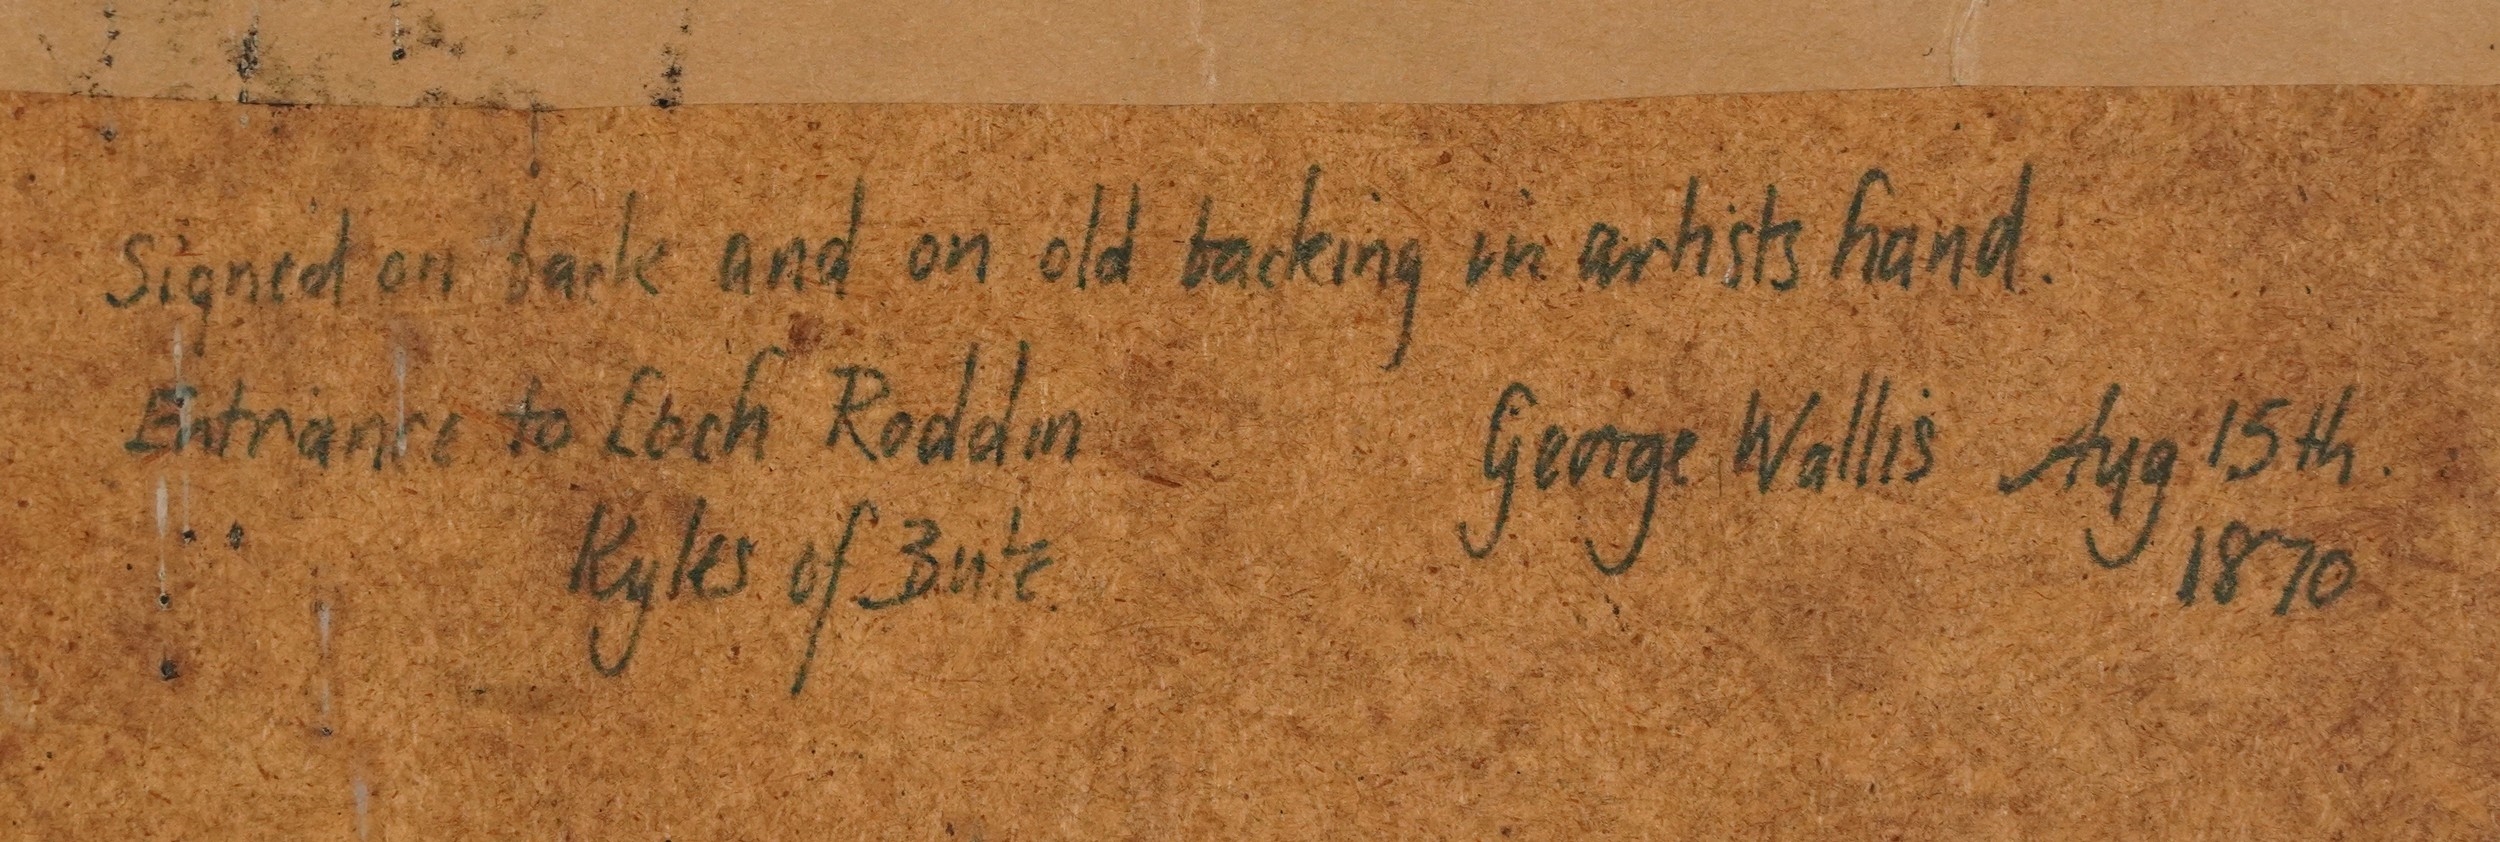 Signed on back and on old backing in artists hand.
Entrance to Loch Roddin George Wallis Aug 15th.
Kyles of Bute. 1870